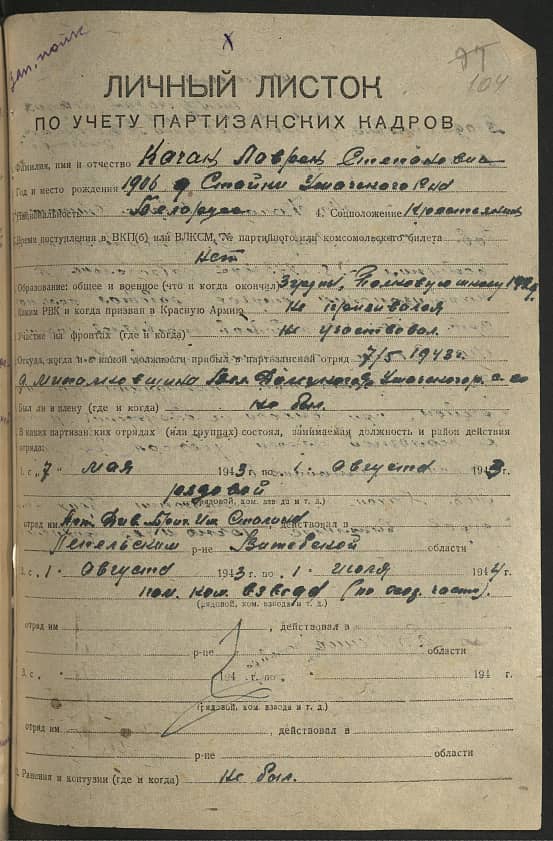 зап. полк
X
104
ЛИЧНЫЙ ЛИСТОК
ПО УЧЕТУ ПАРТИЗАНСКИХ КАДРОВ
Фамилия, имя и отчество Качан Лаврен Степанович
Год и место рождения 1906 д. Стайки Ушачского р-на
Национальность Белорус 4. Соцположение Крестьянин
Время поступления в ВКП(б) или ВЛКСМ, № партийного или комсомольского билета
нет
Образование: общее и военное (что и когда окончил) 3 группы, Полковую школу 192 г.
Каким РВК и когда призван в Красную Армию не призивался
Участие на фронтах (где и когда) не участвовал
Откуда, когда и с какой должности прибыл в партизанский отряд 7/5 1943 г.
д. Ушачского р.
Был ли в плену (где и когда) не был.
В каких партизанских отрядах (или группах) состоял, занимаемая должность и район действия
отряда:
1. с „7" мая 1943 г. по „1" Августа 1943 г.
рядовой
(рядовой, ком. взвода и т. д.)
отряд им Арт. Див. Бриг. им Сталина действовал в
Лепельским р-не Витебской области
2. с „1" Августа 1943 г. по „1" июля 1944 г.
пом. ком. взвода (по хоз. части).
(рядовой, ком. взвода и т. д.)
отряд им , действовал в
р-не области
3. с 194 г. по 194 г.
(рядовой, ком. взвода и т. д.)
отряд им , действовал в
р-не области
Ранения и контузии (где и когда) не был.